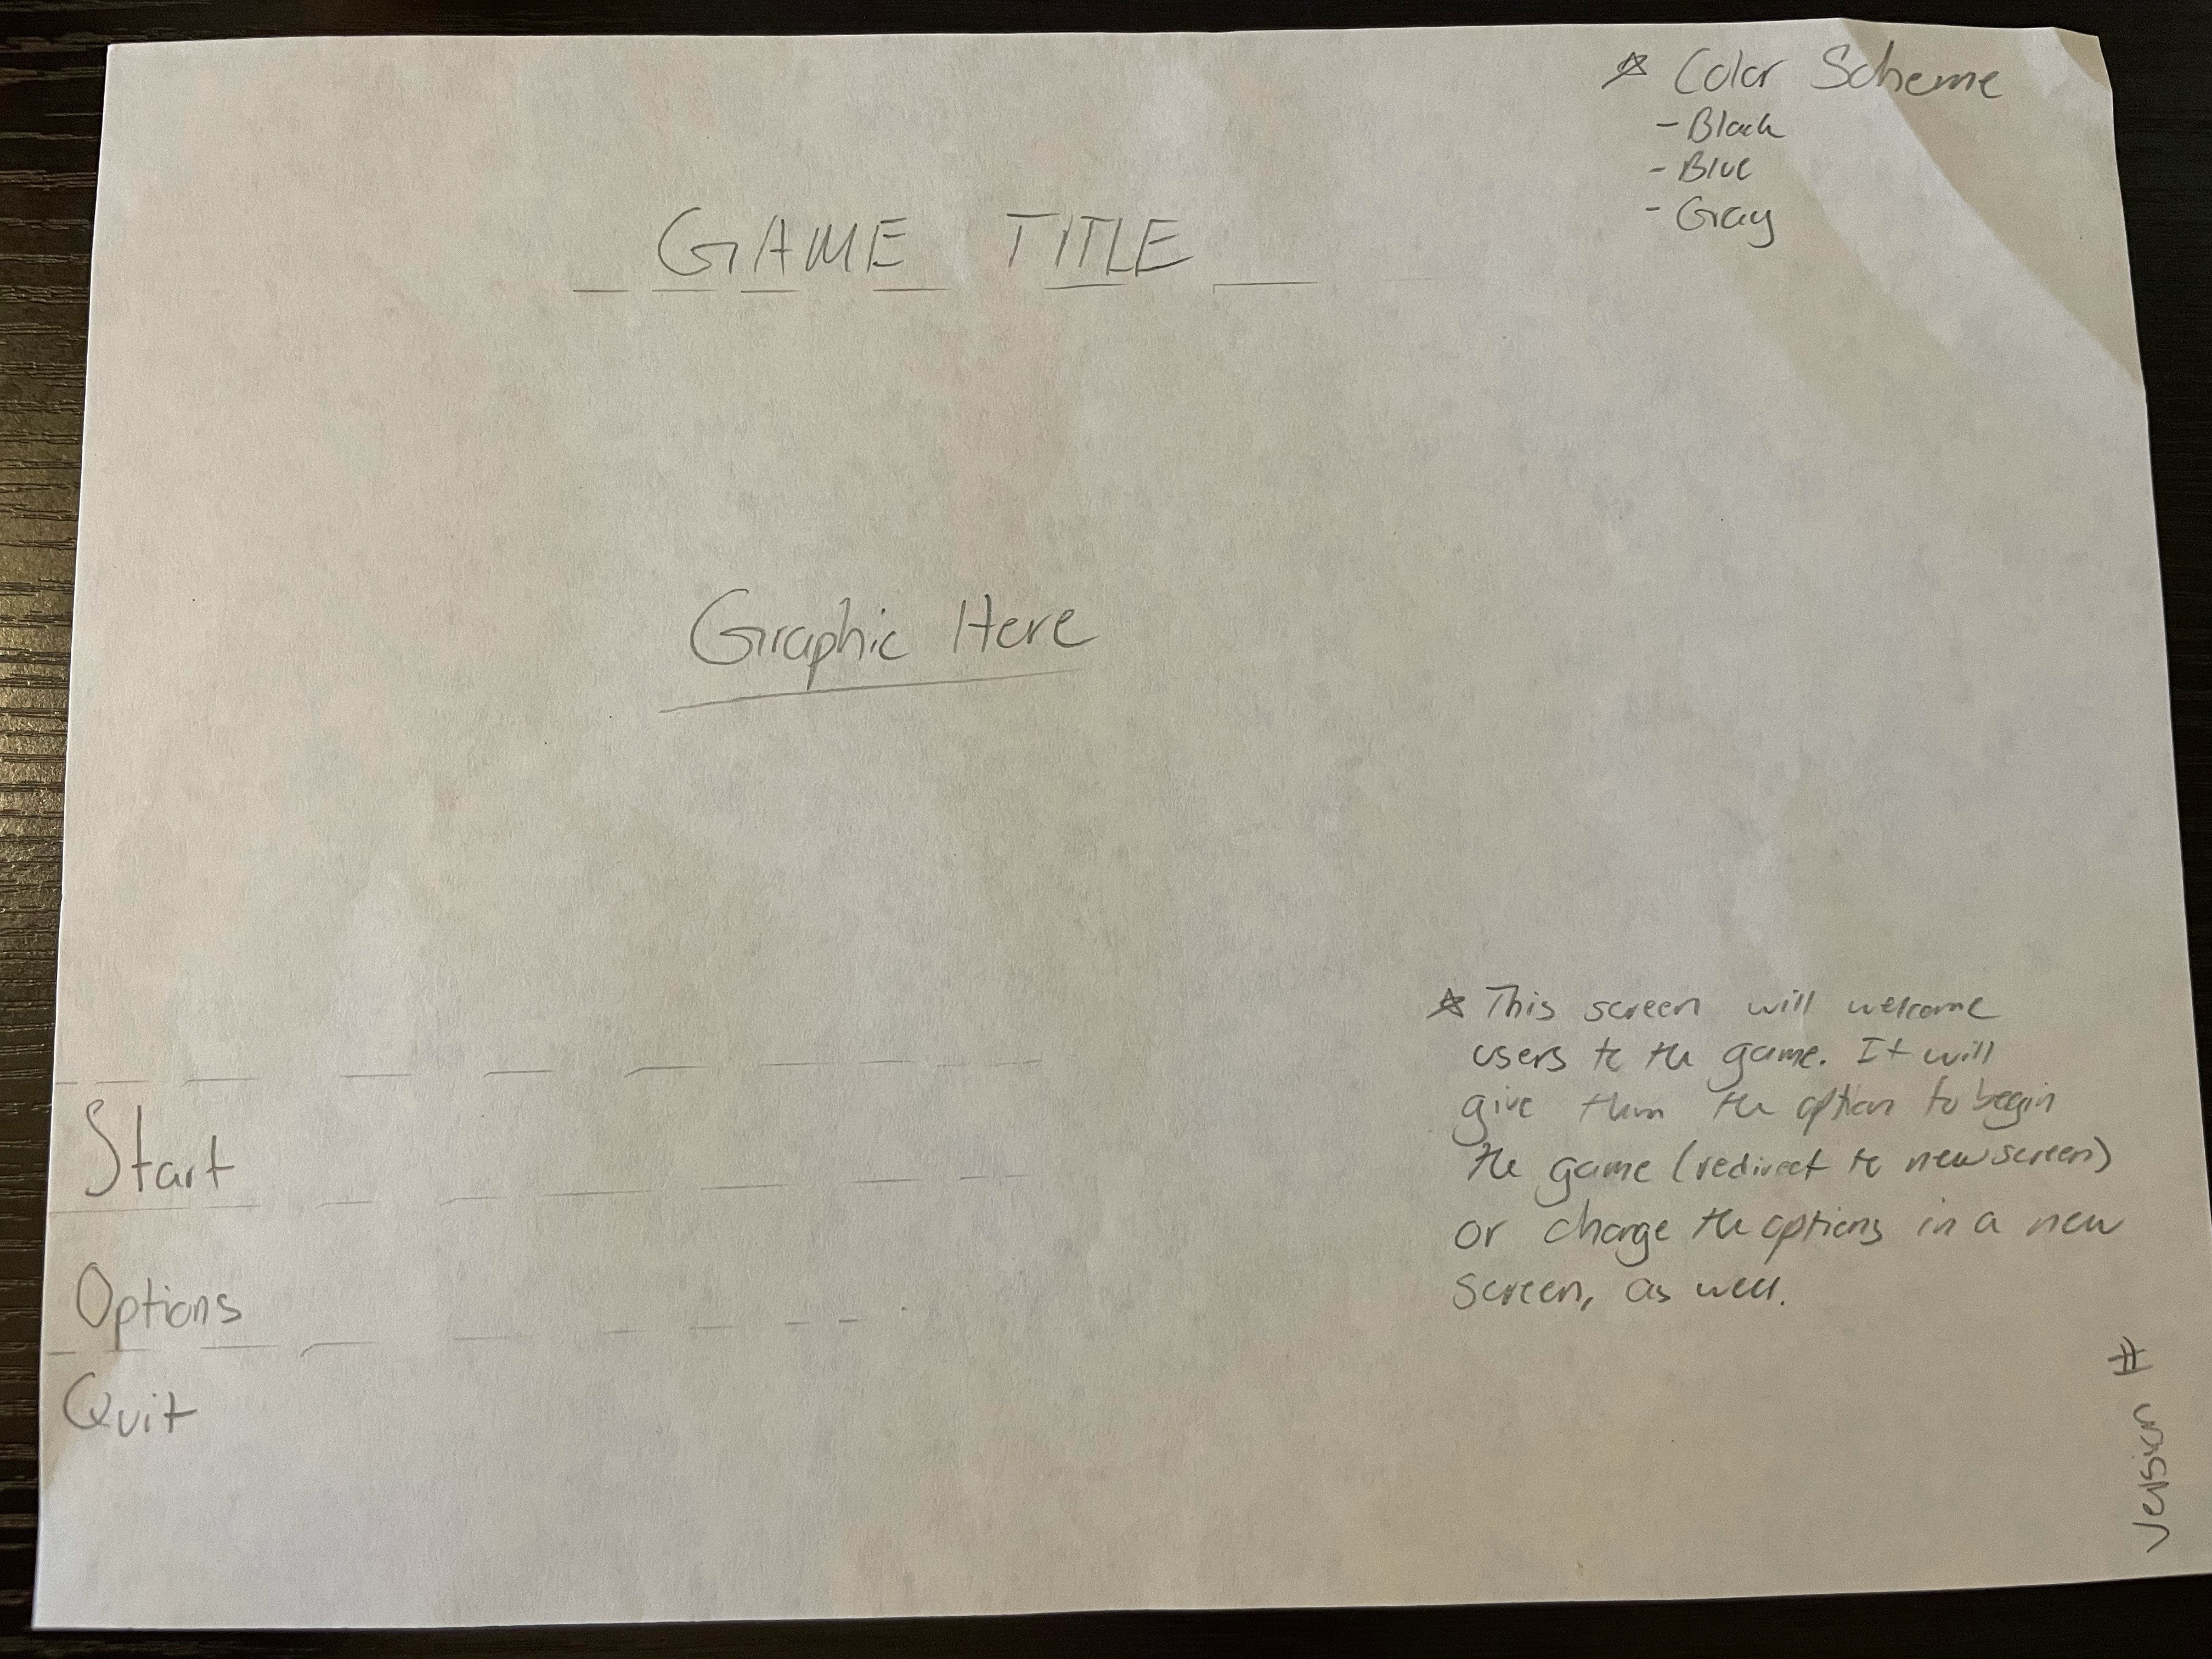 ☆ Color Scheme
- Black
- Blue
- Gray
GAME TITLE
Graphic Here
Start
Options
Quit
☆ This screen will welcome
users to the game. It will
give them the option to begin
the game (redirect to new screen)
or change the options in a new
screen, as well.
Version #